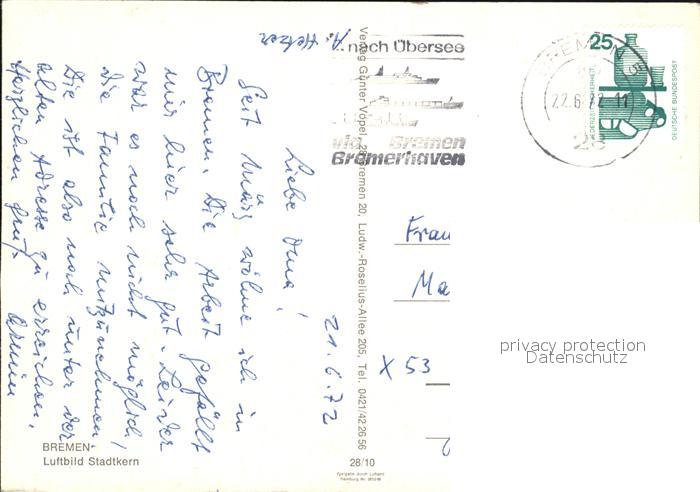 A. Hetzer
21.6.72
Liebe Oma!
Seit März wohne ich in
Bremen. Die Arbeit gefällt
mir hier sehr gut. Leider
war es noch nicht möglich,
die Familie mitzunehmen.
Die ist also noch unter der
alten Adresse zu erreichen.
Herzlichen Gruß
Armin
BREMEN
Luftbild Stadtkern
28/10
Verlag Günter Vopel, 28 Bremen 20, Ludw.-Roselius-Allee 205, Tel. 0421/42 26 56
nach Übersee
via Bremen
Bremerhaven
BREMEN 5
22.6.72-11
28
25
JEDERZEIT SICHERHEIT
DEUTSCHE BUNDESPOST
Frau
Ma
X 53
privacy protection
Datenschutz